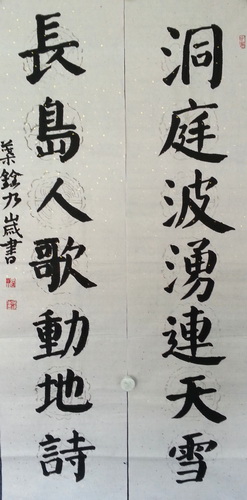 洞庭波湧連天雪
長島人歌動地詩
葉銓九歲書